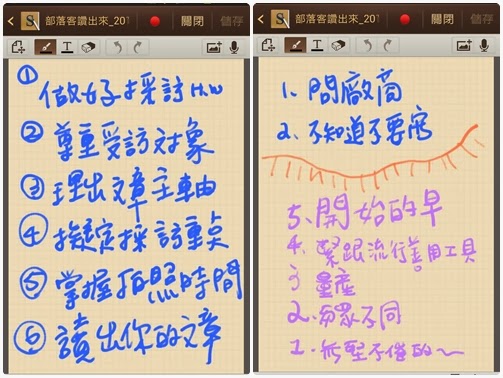 部落客讚出來_201
關閉
儲存
① 做好採訪H.W
② 尊重受訪对象
③ 理出文章主軸
④ 擬定採訪重点
⑤ 掌握拍照時間
⑥ 讀出你的文章
部落客讚出來_201
關閉
儲存
1. 問廠商
2. 不知道不要寫
5. 開始的早
4. 緊跟流行善用工具
3 量產
2. 與眾不同
1. 無堅不催的~